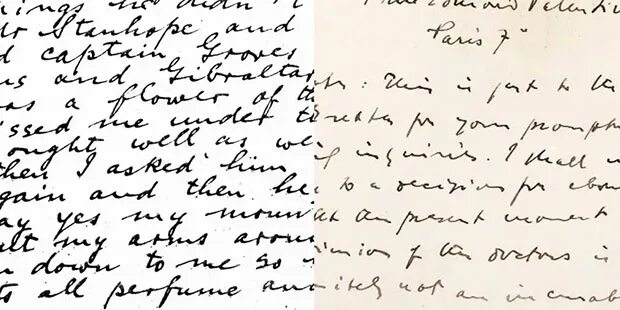 ings he didn't
r Stanhope and
d captain Groves
us and Gibraltar
as a flower of th
issed me under t
ought well as we
then I asked him
gain and then he
ay yes my moun
ut my arms aroun
down to me so
s all perfume an
Edmond Valentin
Paris 7e
: This is just to tha
for your prompt
g inquiries. I shall
to a decision for abou
At the present moment
inion of the doctors is
itely not an incurab